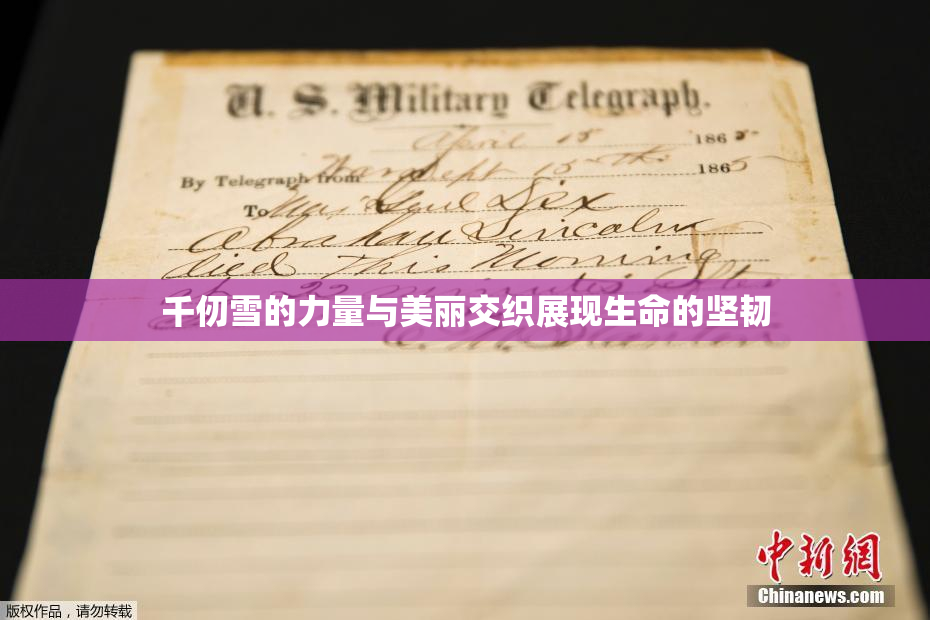 U. S. Military Telegraph.
April 15 1865
By Telegraph from War Dept 15th 1865
To Maj Genl Dix
Abraham Lincoln
died This Morning
at 22 minutes after
千仞雪的力量与美丽交织展现生命的坚韧
E. M. Stanton
中新网
Chinanews.com
版权作品，请勿转载